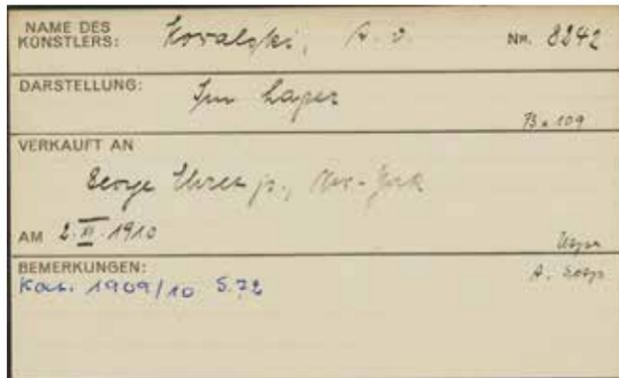 NAME DES
KÜNSTLERS: Kovalski, A. v. NR. 8242
DARSTELLUNG: Im Lager
73 x 109
VERKAUFT AN
George Ehret jr., New-York
AM 2. XI. 1910
BEMERKUNGEN:
Kat. 1909/10 S. 72